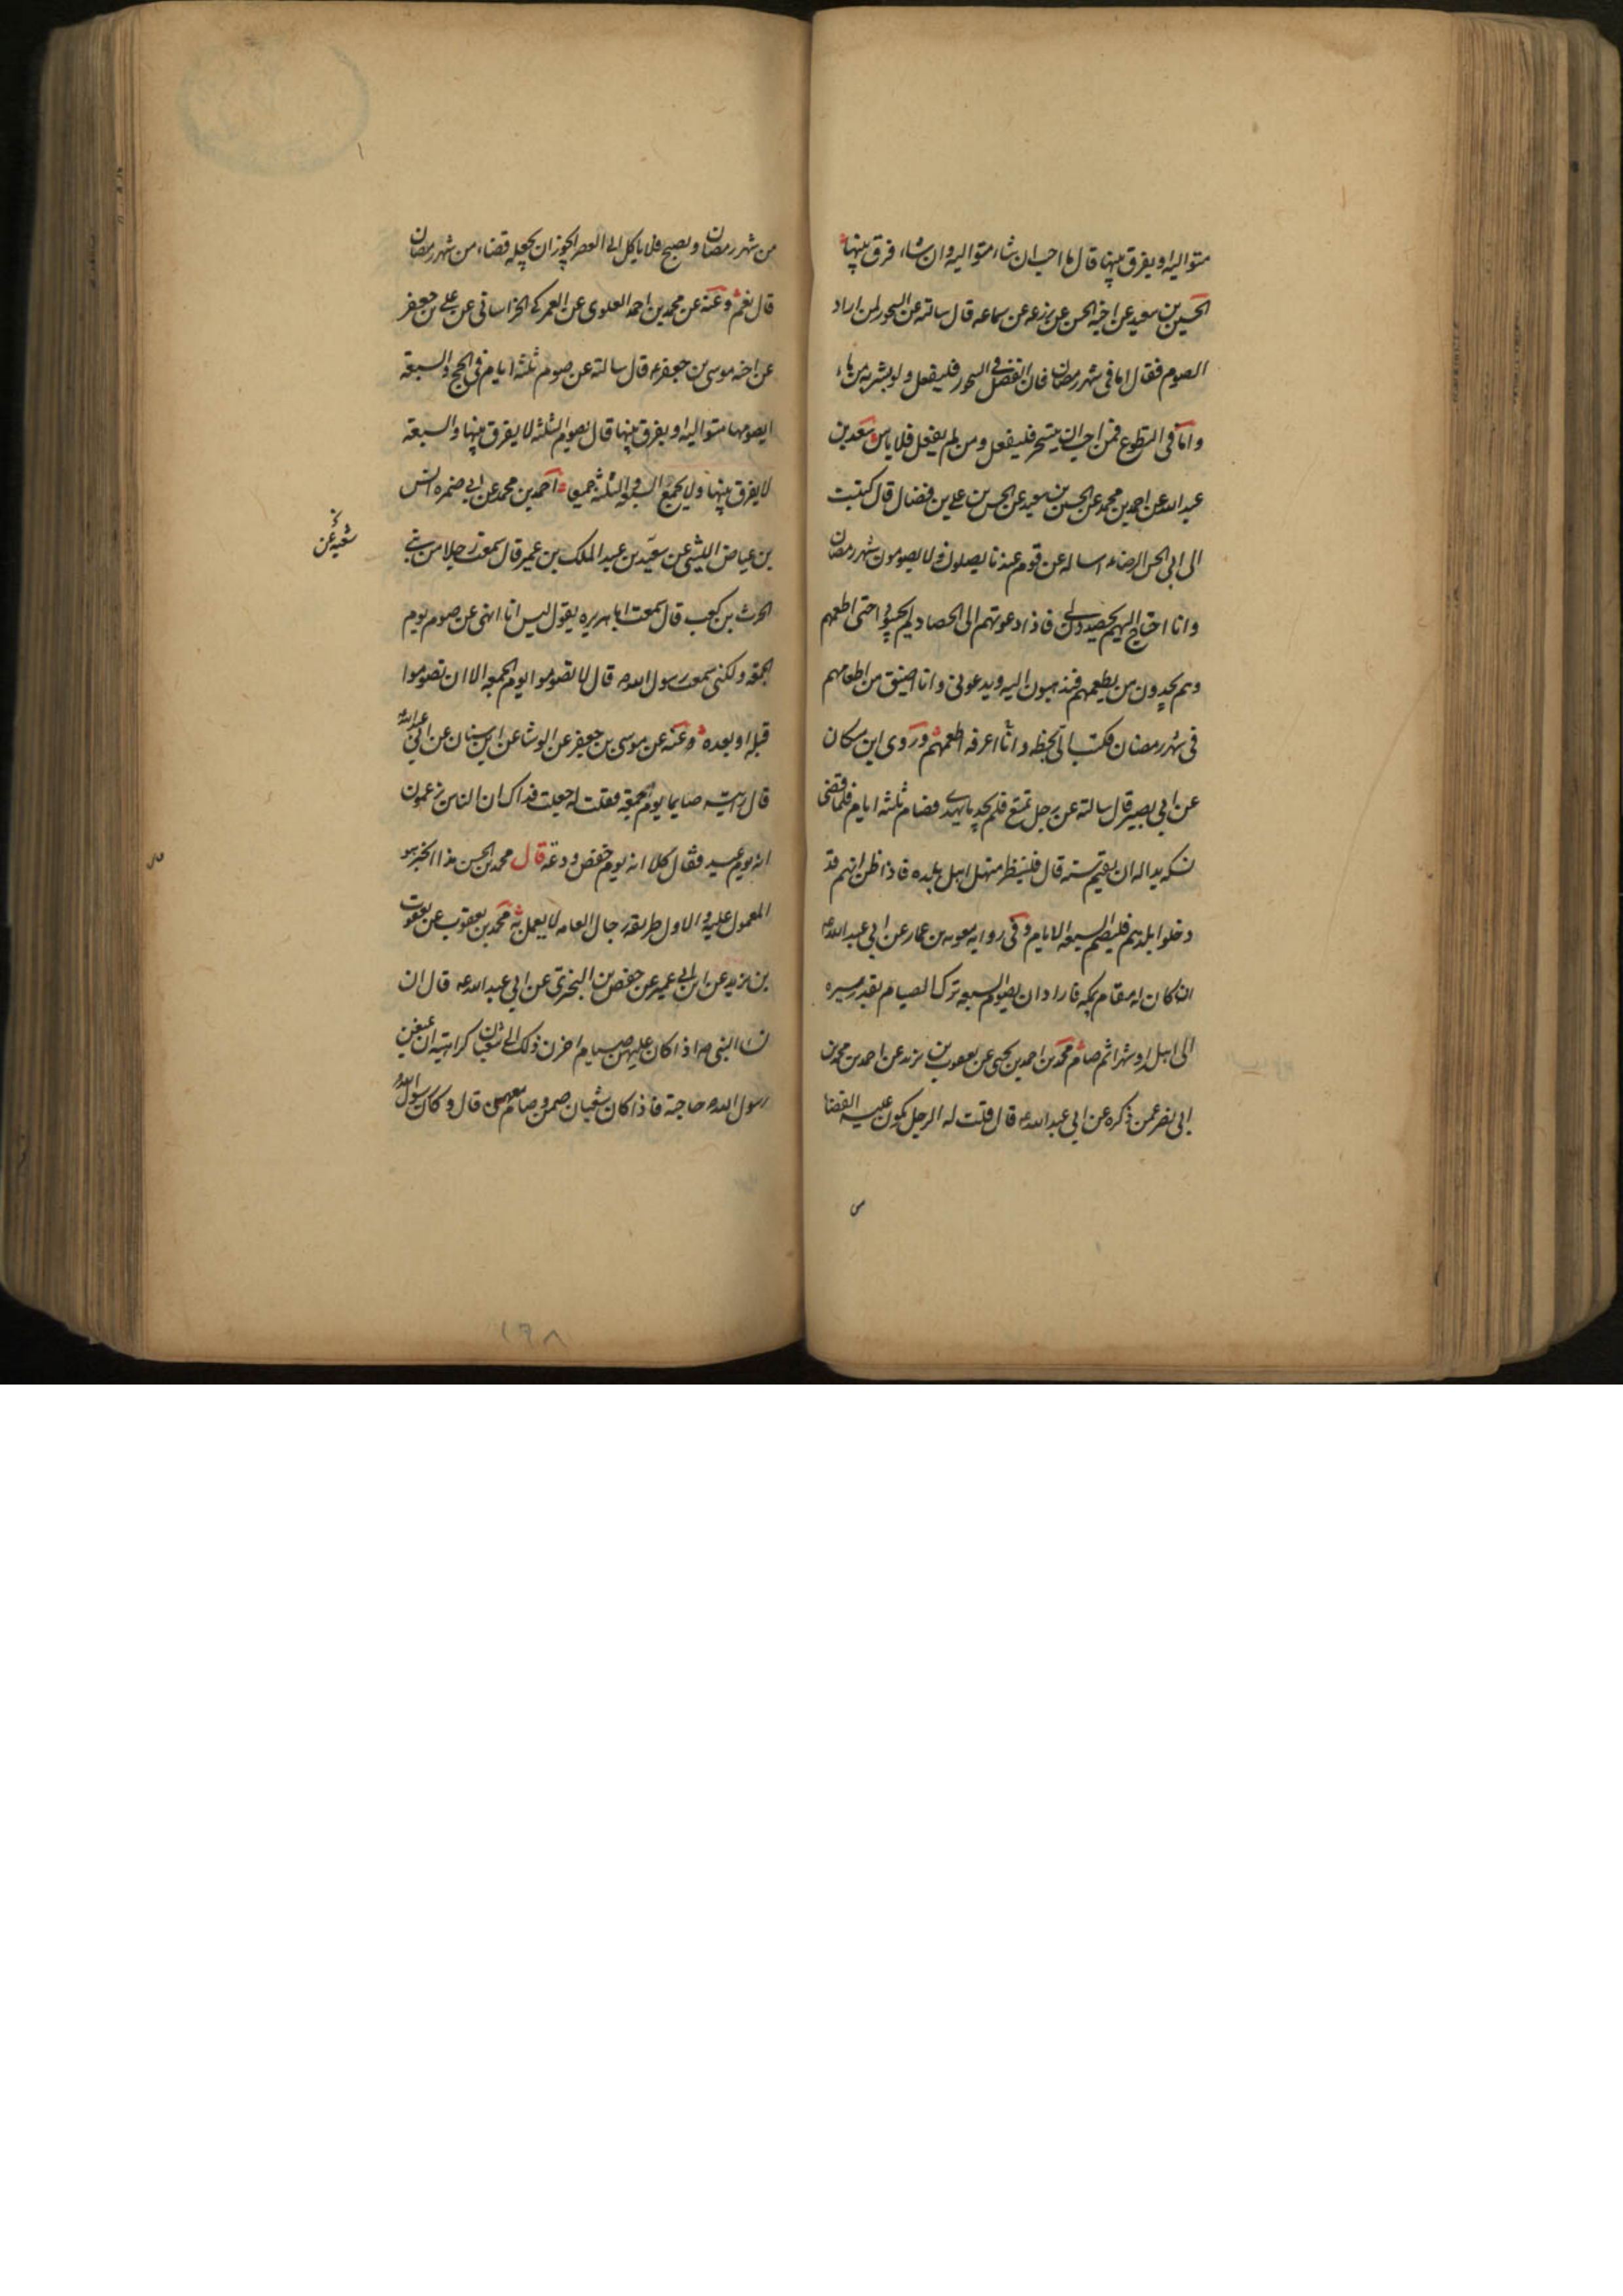 متواليه او يفرق بينها قال ما احب ان شاء متواليه وان شاء فرق بينها
الحسين بن سعيد عن اخيه الحسن عن زرعه عن سماعه قال سالته عن السحور لمن اراد
الصوم فقال اما فى شهر رمضان فان الفضل فى السحور فليفعل ولو بشربه من ماء
واما فى التطوع فمن احب ان يتسحر فليفعل ومن لم يفعل فلا باس سعد بن
عبد الله عن احمد بن محمد عن الحسين بن سعيد عن الحسن بن على بن فضال قال كتبت
الى ابى الحسن الرضاء اساله عن قوم عندنا يصلون ولا يصومون شهر رمضان
وانا احتاج اليهم يحصدون لى فاذا دعوتهم الى الحصاد لم يجيبونى حتى اطعمهم
وهم يجدون من يطعمهم فيذهبون اليه ويدعونى وانا اضيق من اطعامهم
فى شهر رمضان فكتب الى بخطه وانا اعرفه اطعمهم وروى ابن مسكان
عن ابى بصير قال سالته عن رجل تمتع فلم يجد ما يهدى فصام ثلثه ايام فلما قضى
نسكه بدا له ان يقيم سنه قال فلينظر منهل اهل بلده فاذا ظن انهم قد
دخلوا بلدهم فليصم السبعه الايام وفى روايه معويه بن عمار عن ابى عبد الله ع
انه كان له مقام بمكه فاراد ان يصوم السبعه ترك الصيام بقدر مسيره
الى اهله او شهرا ثم صام محمد بن احمد بن يحيى عن يعقوب بن يزيد عن احمد بن محمد بن
ابى نصر عمن ذكره عن ابى عبد الله ع قال قلت له الرجل يكون عليه القضا
من شهر رمضان ويصبح فلا ياكل الى العصر ايجوز ان يجعله قضاء من شهر رمضان
قال نعم وعنه عن محمد بن احمد العلوى عن العمركى الخراسانى عن على بن جعفر
عن اخيه موسى بن جعفر ع قال سالته عن صوم ثلثه ايام فى الحج والسبعة
ايصومها متواليه او يفرق بينها قال يصوم الثلثه لا يفرق بينها والسبعة
لا يفرق بينها ولا يجمع السبعة والثلثة جميعا احمد بن محمد عن ابى ضمره انس
بن عياض الليثى عن سعيد بن عبد الملك بن عمير قال سمعت رجلا من بنى
شعبه عن
الحرث بن كعب قال سمعت ابا هريره يقول ليس انا انهى عن صوم يوم
الجمعة ولكنى سمعت رسول الله ص قال لا تصوموا يوم الجمعه الا ان تصوموا
قبله او بعده وعنه عن موسى بن جعفر عن الوشا عن ابن سنان عن ابى عبد الله ع
قال رايته صايما يوم الجمعة فقلت له جعلت فداك ان الناس يزعمون
انه يوم عيد فقال كلا انه يوم خفض ودعة قال محمد بن الحسن هذا الخبر هو
المعمول عليه والاول طريقه رجال العامه لا يعمل به محمد بن يعقوب عن يعقوب
بن يزيد عن ابن ابى عمير عن حفص بن البخترى عن ابى عبد الله ع قال ان
نساء النبى ص اذا كان عليهن صيام اخرن ذلك الى شعبان كراهية ان يمنعن
رسول الله ص حاجته فاذا كان شعبان صمن وصام معهن قال وكان رسول الله
۱۶۸